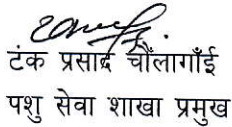 टंक प्रसाद चौंलागाँई
पशु सेवा शाखा प्रमुख